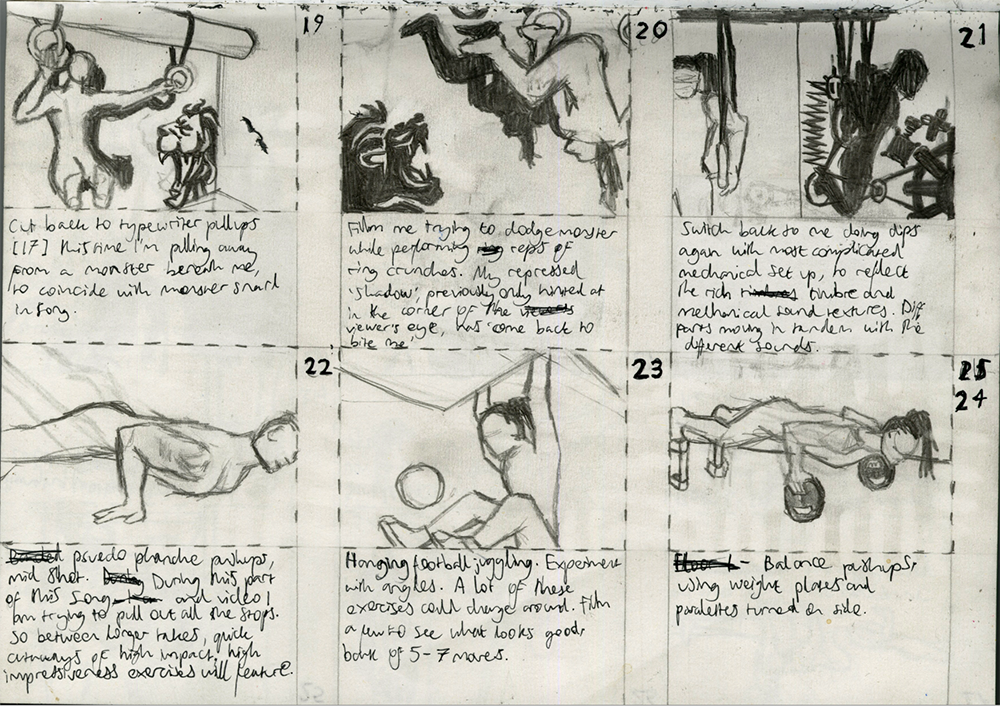 19
20
21
Cut back to typewriter pullups
[17] this time I'm pulling away
from a monster beneath me,
to coincide with monster snarl
in song.
Film me trying to dodge monster
while performing reps of
ring crunches. My repressed
'shadow', previously only hinted at
in the corner of the
viewer's eye, has 'come back to
bite me'
Switch back to me doing dips
again with most complicated
mechanical set up, to reflect
the rich timbre and
mechanical sound textures. Diff
parts moving in tandem with the
different sounds.
22
23
24
psuedo planche pushups,
mid shot. During this part
of this song and video I
am trying to pull out all the stops.
So between longer takes, quick
cutaways of high impact, high
impressiveness exercises will feature.
Hanging football juggling. Experiment
with angles. A lot of these
exercises could change around. Film
a few to see what looks good
bank of 5-7 moves.
- Balance pushups,
using weight plates and
paralettes turned on side.